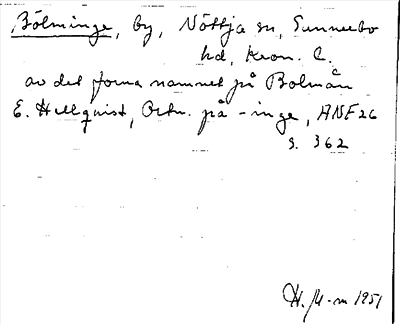 Bölminge, by, Nöttja sn, Sunnerbo
hd, Kron. l.
av det forna namnet på Bolmån
E. Hellquist, Ortn. på -inge, ANF 26
s. 362
1951